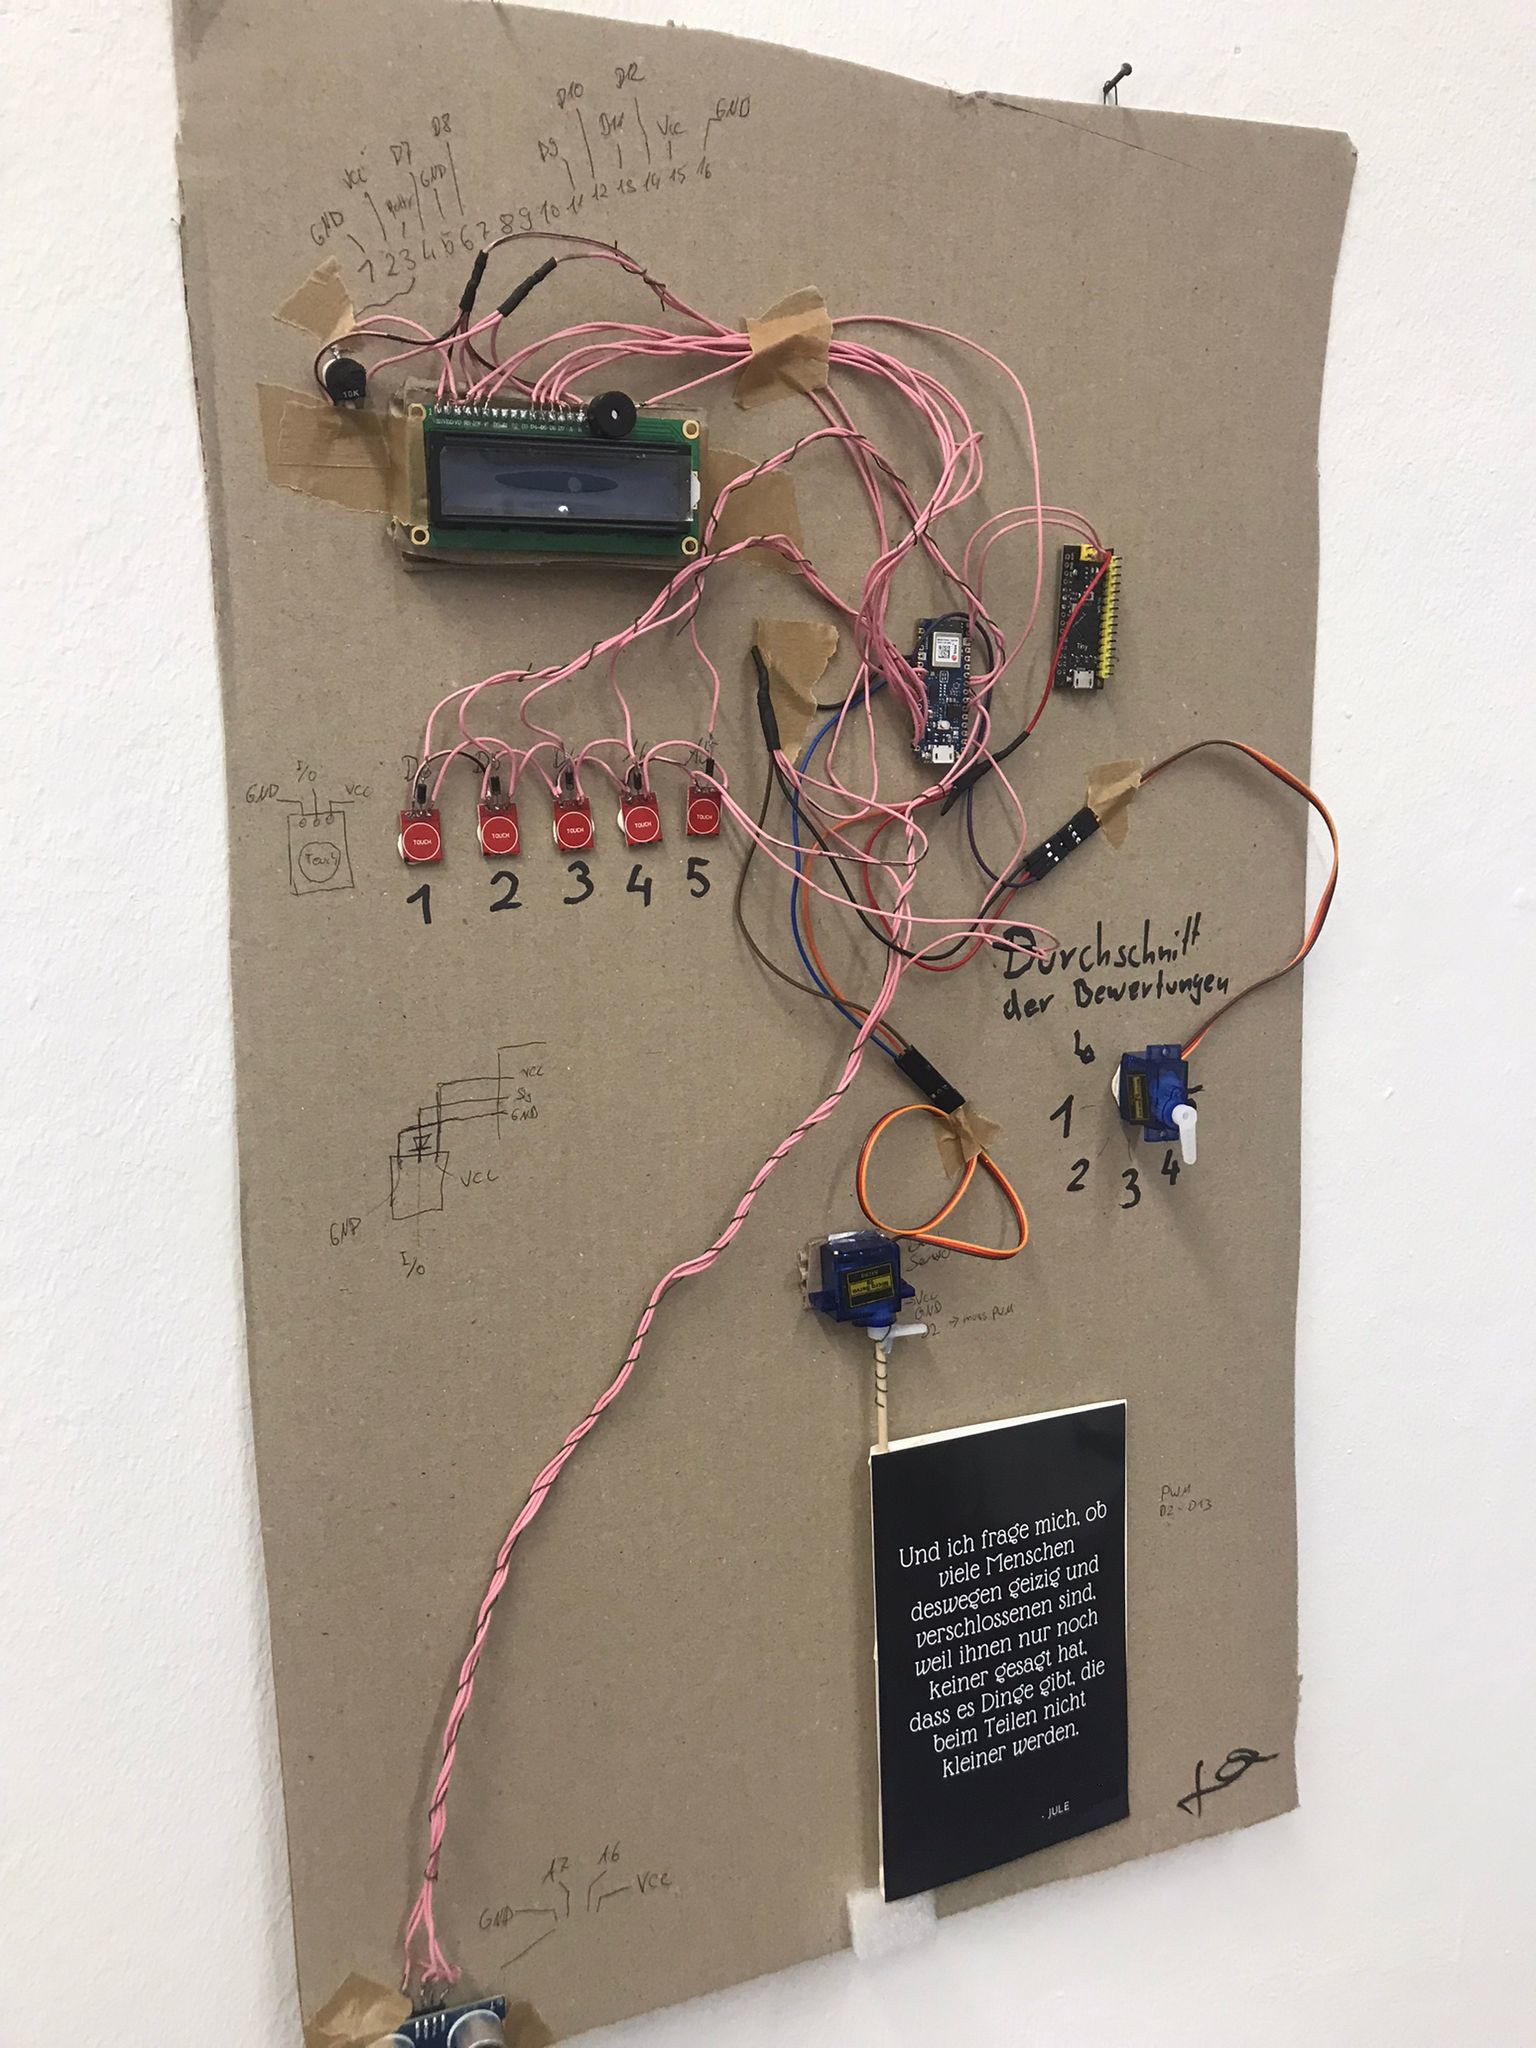 D12
D10
D8
D11
GND
D7
D9
VCC
VCC
GND
GND
1 2 3 4 5 6 7 8 9 10 11 12 13 14 15 16
10K
I/O
GND
VCC
Touch
TOUCH
TOUCH
TOUCH
TOUCH
TOUCH
1 2 3 4 5
Tiny
Durchschnitt
der Bewertungen
1
2
3
4
5
VCC
GND
VCC
GND
I/O
Servo
→VCC
GND
D2 → muss PWM
PWM
D2 - D13
Und ich frage mich, ob
viele Menschen
deswegen geizig und
verschlossenen sind,
weil ihnen nur noch
keiner gesagt hat,
dass es Dinge gibt, die
beim Teilen nicht
kleiner werden.
- JULE
A7
A6
GND
VCC